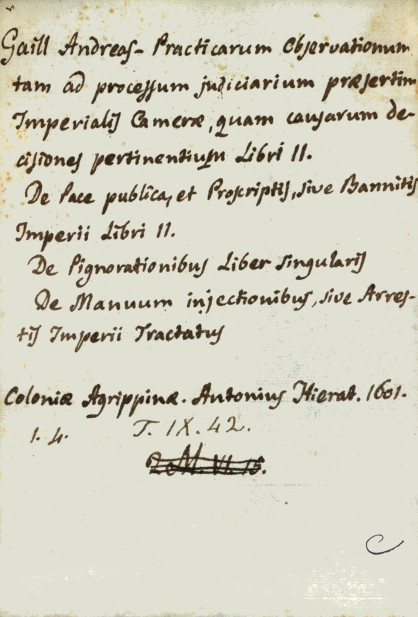 Gaill Andreas - Practicarum Observationum
tam ad processum judiciarium præsertim
Imperialis Cameræ, quam causarum de-
cisiones pertinentium Libri II.
De Pace publica, et Proscriptis, sive Bannitis
Imperii Libri II.
De Pignorationibus Liber singularis
De Manuum injectionibus, sive Arres-
tis Imperii Tractatus
Coloniæ Agrippinæ. Antonius Hierat. 1601.
1. 4. T. IX. 42.